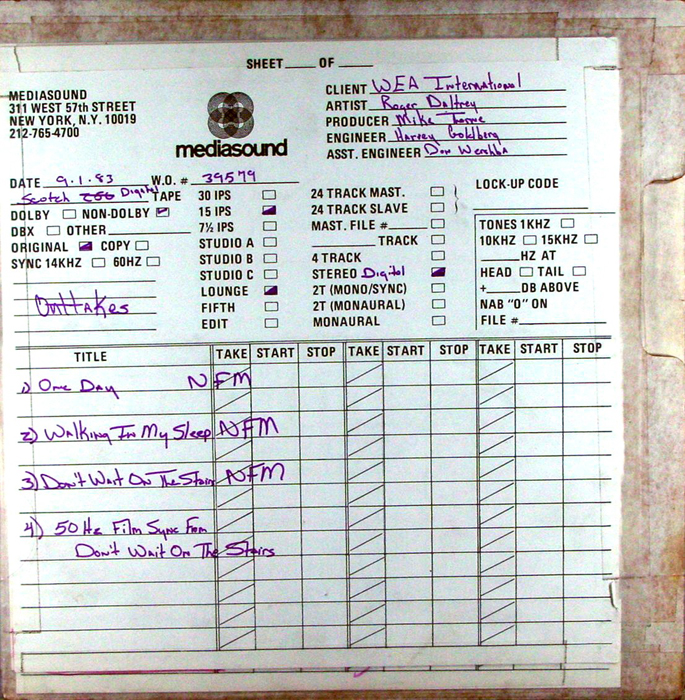 SHEET ____ OF ____
MEDIASOUND
311 WEST 57th STREET
NEW YORK, N.Y. 10019
212-765-4700
mediasound
CLIENT WEA International
ARTIST Roger Daltrey
PRODUCER Mike Thorne
ENGINEER Harvey Goldberg
ASST. ENGINEER Don Wershba
DATE 9.1.83 W.O. # 39579
Scotch 250 Digital TAPE
DOLBY NON-DOLBY
DBX OTHER
ORIGINAL COPY
SYNC 14KHZ 60HZ
Outtakes
30 IPS
15 IPS
7½ IPS
STUDIO A
STUDIO B
STUDIO C
LOUNGE
FIFTH
EDIT
24 TRACK MAST.
24 TRACK SLAVE
MAST. FILE #
TRACK
4 TRACK
STEREO Digital
2T (MONO/SYNC)
2T (MONAURAL)
MONAURAL
LOCK-UP CODE
TONES 1KHZ
10KHZ 15KHZ
HZ AT
HEAD TAIL
+ DB ABOVE
NAB "O" ON
FILE #
TITLE TAKE START STOP TAKE START STOP TAKE START STOP
1) One Day NFM
2) Walking In My Sleep NFM
3) Don't Wait On The Stairs NFM
4) 50 Hz Film Sync From
Don't Wait On The Stairs